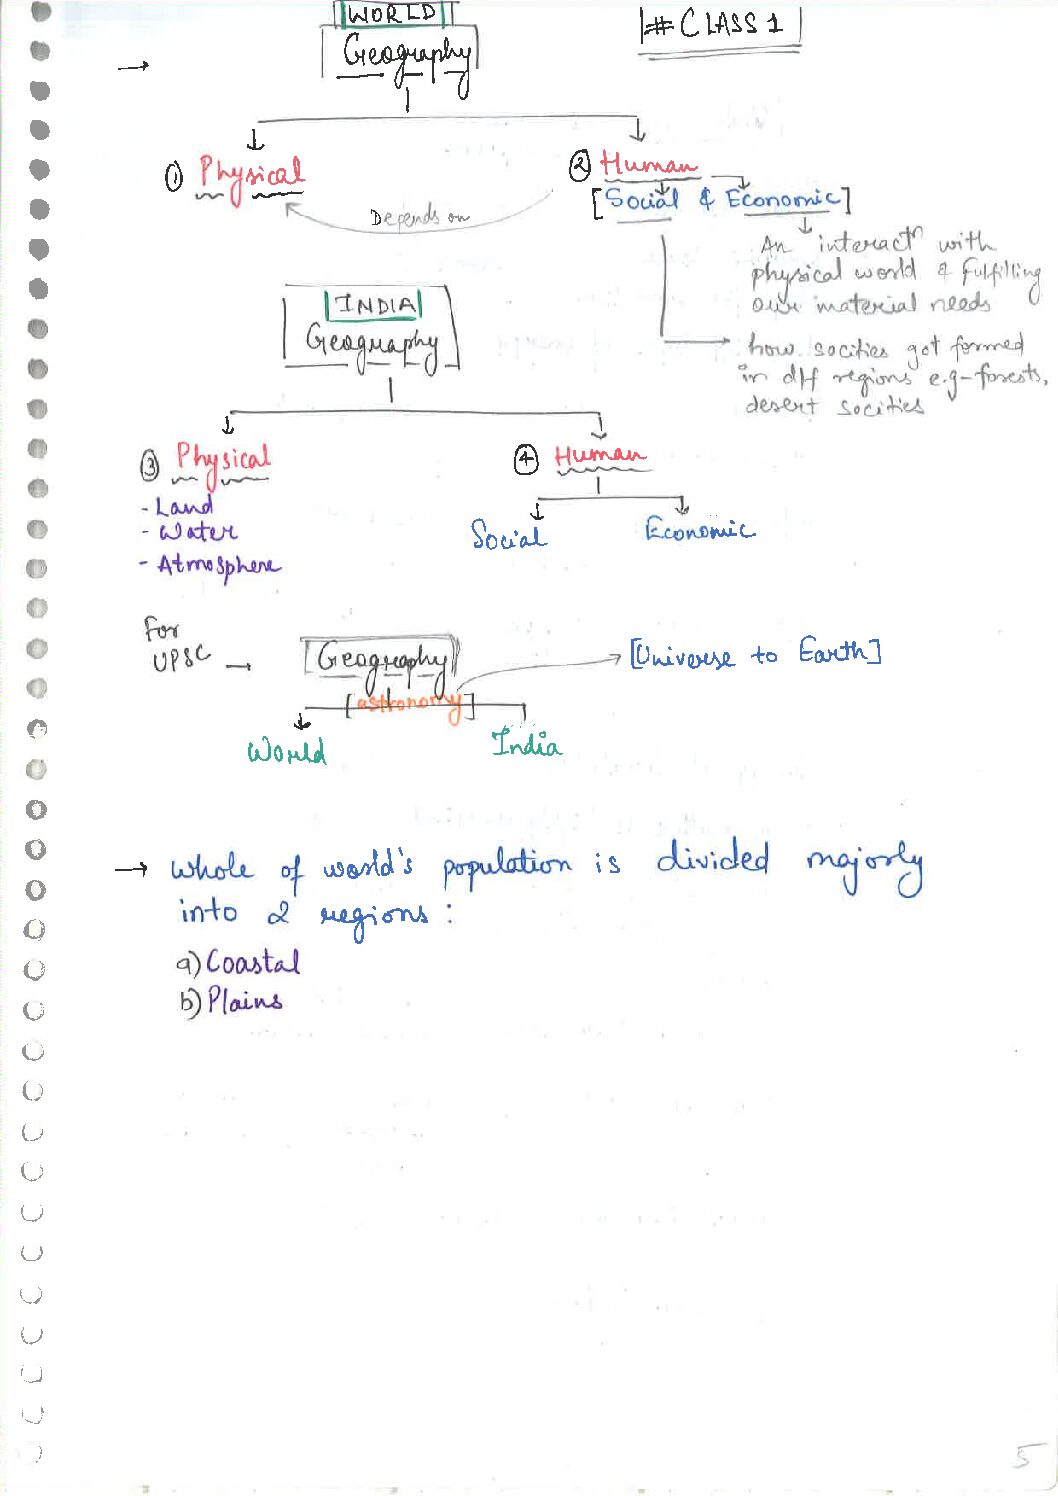 WORLD
Geography
# CLASS 1
→
① Physical
② Human
[Social & Economic]
Depends on
An interactⁿ with
physical world & fulfilling
our material needs
how socities got formed
in diff regions e.g-forests,
desert socities
INDIA
Geography
③ Physical
- Land
- Water
- Atmosphere
④ Human
Social
Economic
For
UPSC →
Geography
[astronomy]
[Universe to Earth]
World
India
→ Whole of world's population is divided majorly
into 2 regions:
a) Coastal
b) Plains
5